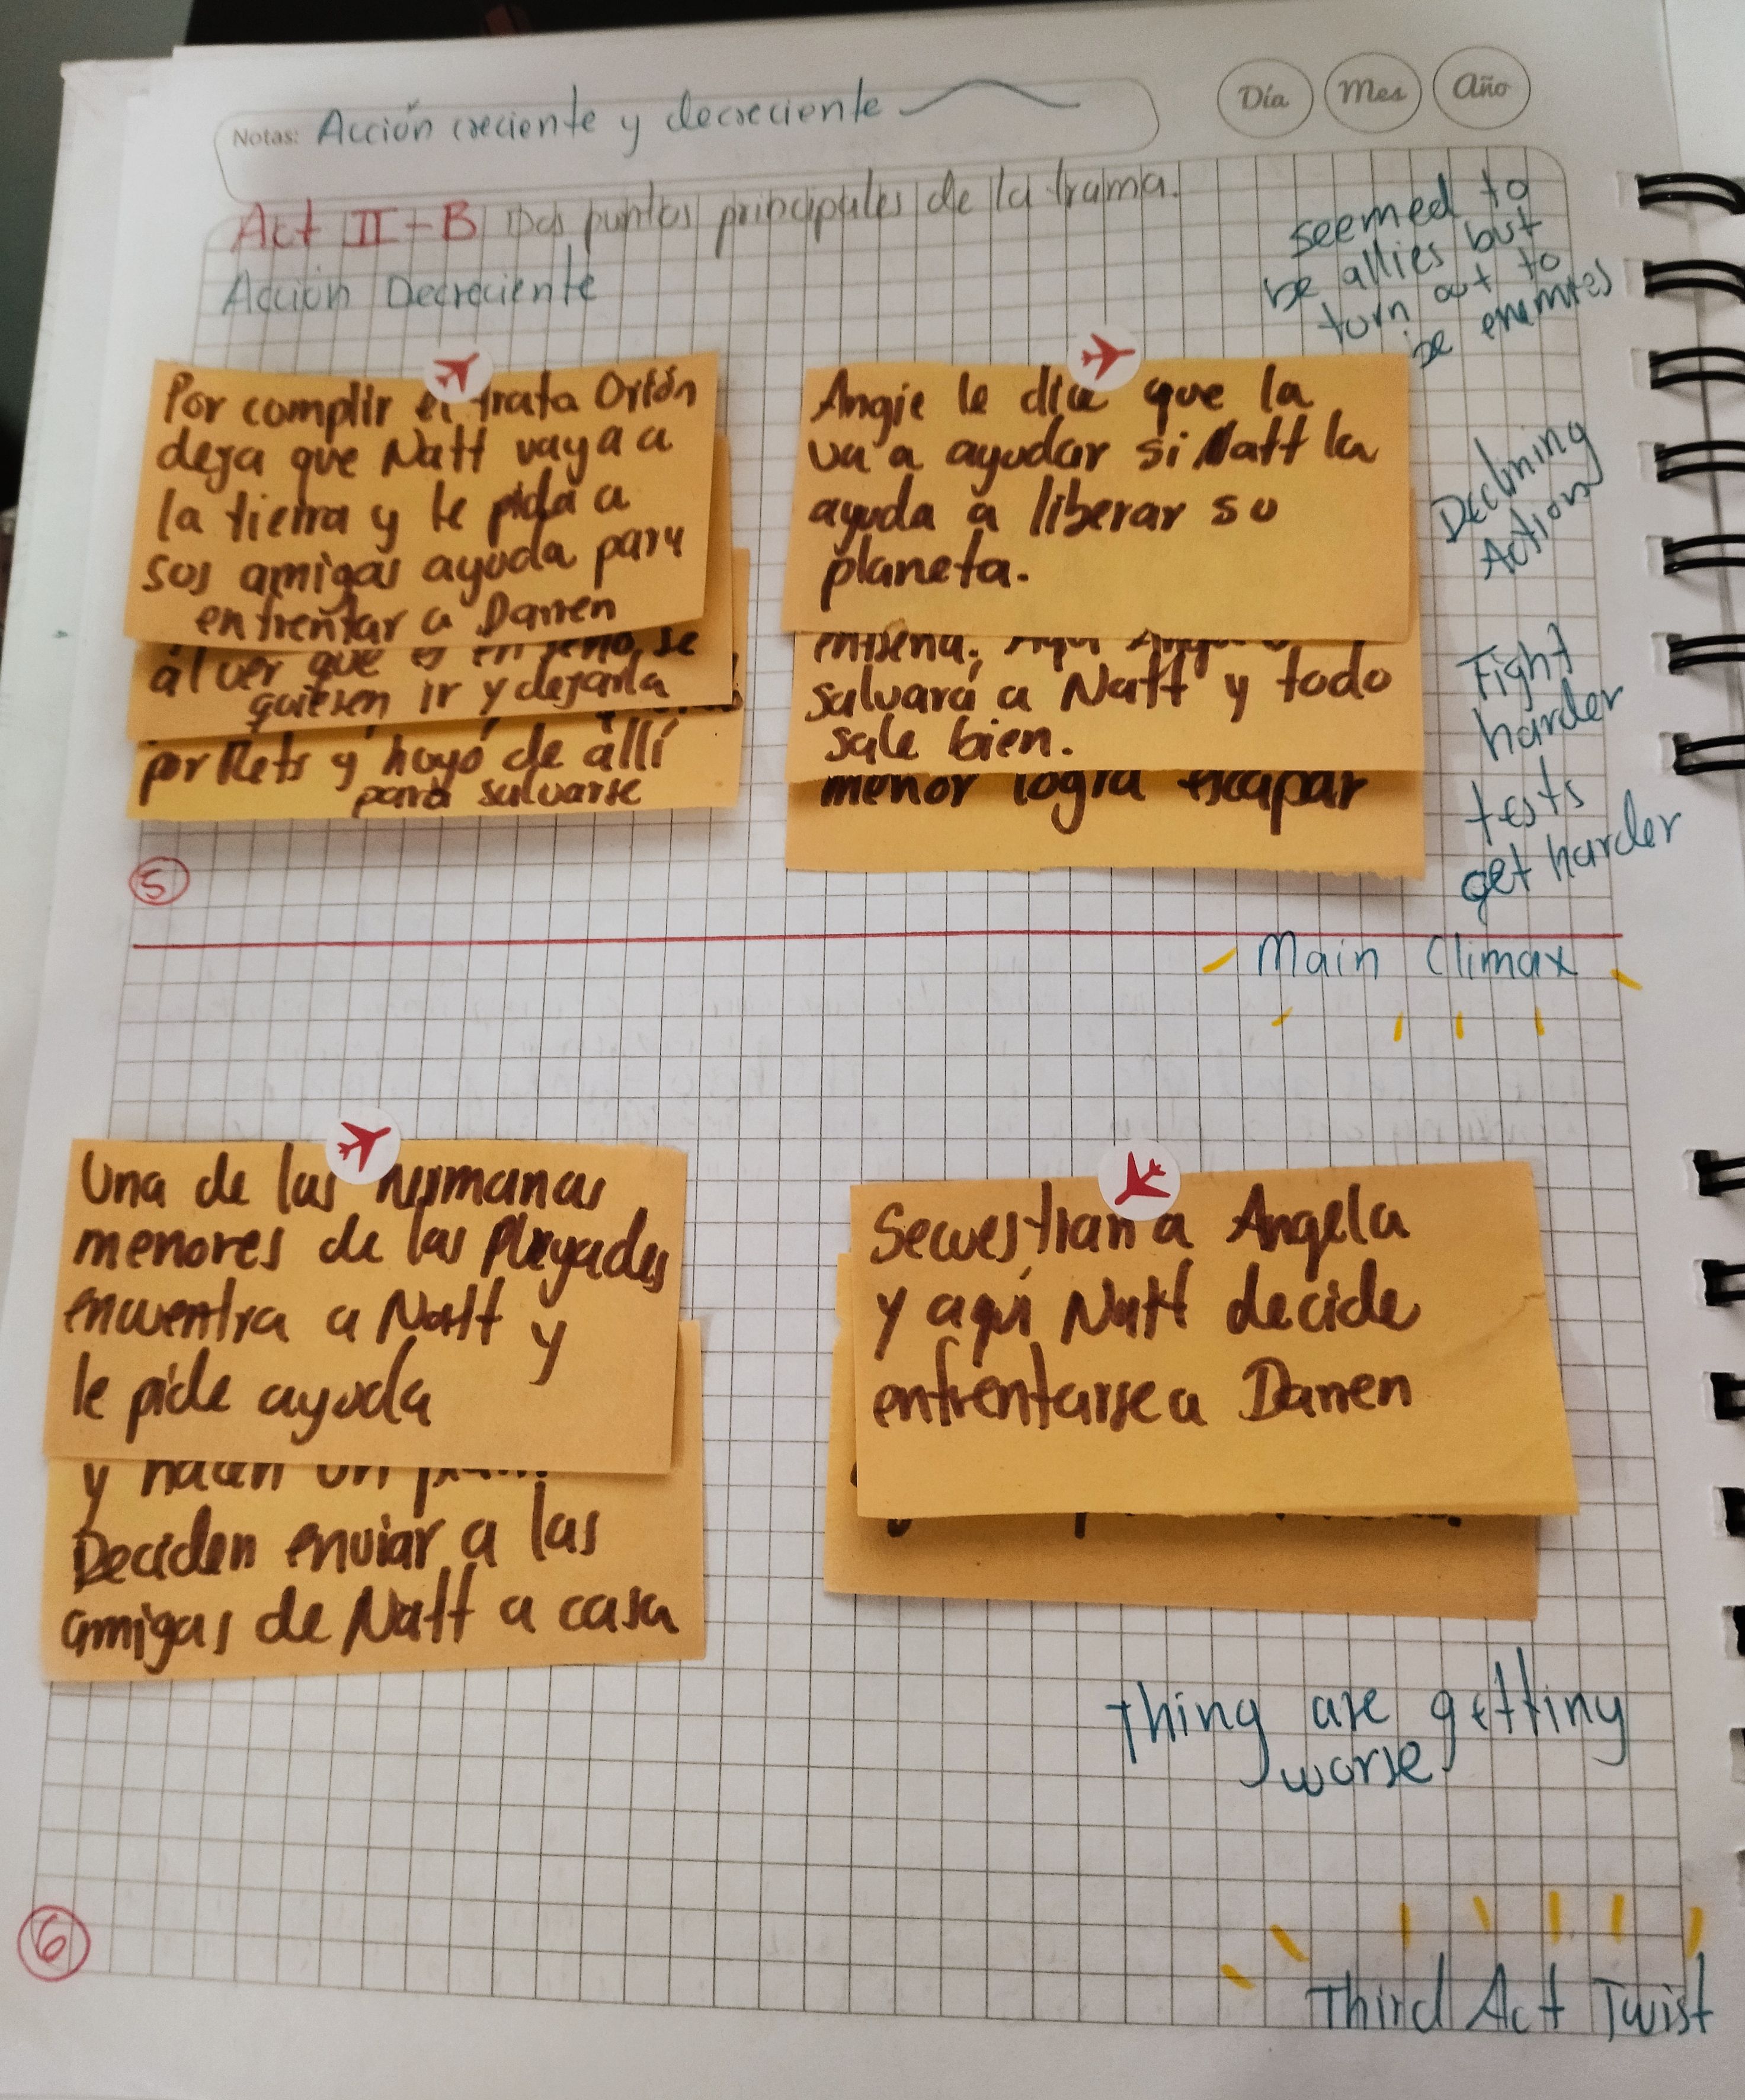 Notas: Acción creciente y decreciente
Día Mes Año
Act II-B Dos puntos principales de la trama.
Acción Decreciente
seemed to
be allies but
turn out to
be enemies
Por complir el trata Orión
deja que Natt vaya a
la tierra y le pida a
sos amigas ayuda para
enfrentar a Darren
al ver que es en serio, se
quieren ir y dejarla
por Rets y huyó de allí
para salvarse
Angie le dice que la
va a ayudar si Natt la
ayuda a liberar so
planeta.
salvará a Natt y todo
sale bien.
menor logra escapar
Declining
Action
Fight
harder
tests
get harder
5
Main Climax
Una de las hermanas
menores de las Pleyades
encuentra a Natt y
le pide ayuda
y hacen un
Deciden enviar a las
amigas de Natt a casa
Secuestran a Angela
y aquí Natt decide
enfrentarse a Darren
Thing are getting
worse
6
Third Act Twist